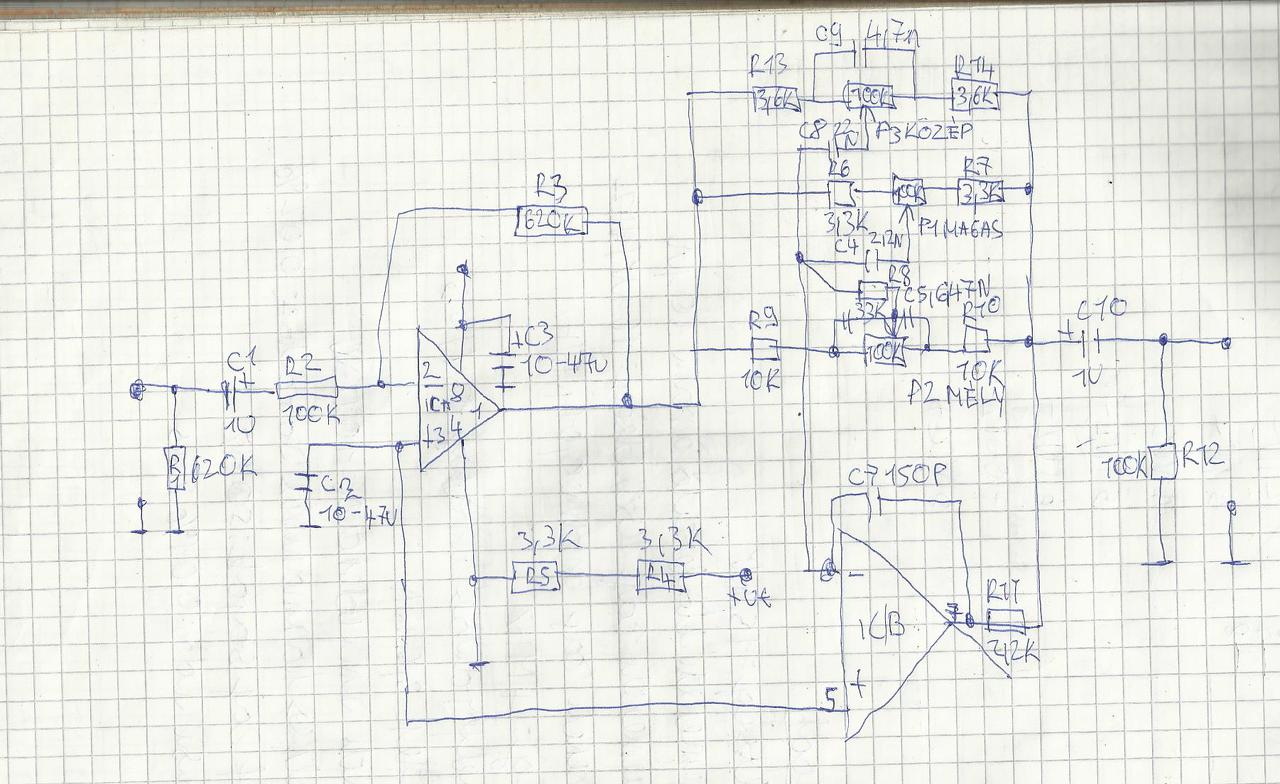 C9 4,7n
R13
R14
3,6K
100K
3,6K
C8 22N
P3 KÖZÉP
R6
100K
R7
3,3K
3,3K
P1 MAGAS
C4 2,2N
R8
33K
C5,6 47N
R9
10K
100K
R10
10K
P2 MÉLY
C10
+
1U
R3
620K
+C3
10-47U
C1
+
1U
R2
100K
2
-
8
1
+3
4
R1
620K
C2
10-47U
100K
R12
C7 150P
3,3K
R5
3,3K
R4
+Ut
-
ICB
7
R11
2,2K
5
+